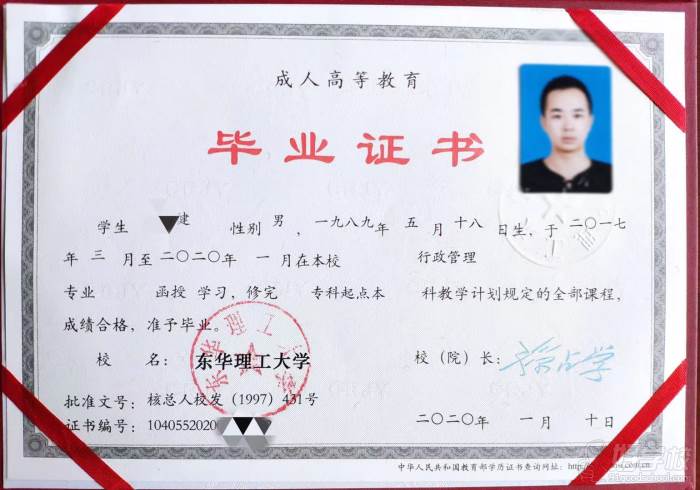 成人高等教育
毕业证书
学生 建 性别 男 ，一九八九年 五 月 十八 日生，于 二〇一七
年 三 月至 二〇二〇年 一 月在本校 行政管理
专业 函授 学习，修完 专科起点本 科教学计划规定的全部课程，
成绩合格，准予毕业。
校 名： 东华理工大学 校（院）长：
批准文号：核总人校发（1997）431号
证书编号：1040552020
二〇二〇年 一 月 十 日
中华人民共和国教育部学历证书查询网址：http://
东华理工大学